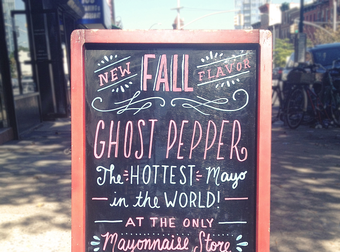 NEW FALL FLAVOR
GHOST PEPPER
The HOTTEST Mayo
in the WORLD!
AT THE ONLY
Mayonnaise Store